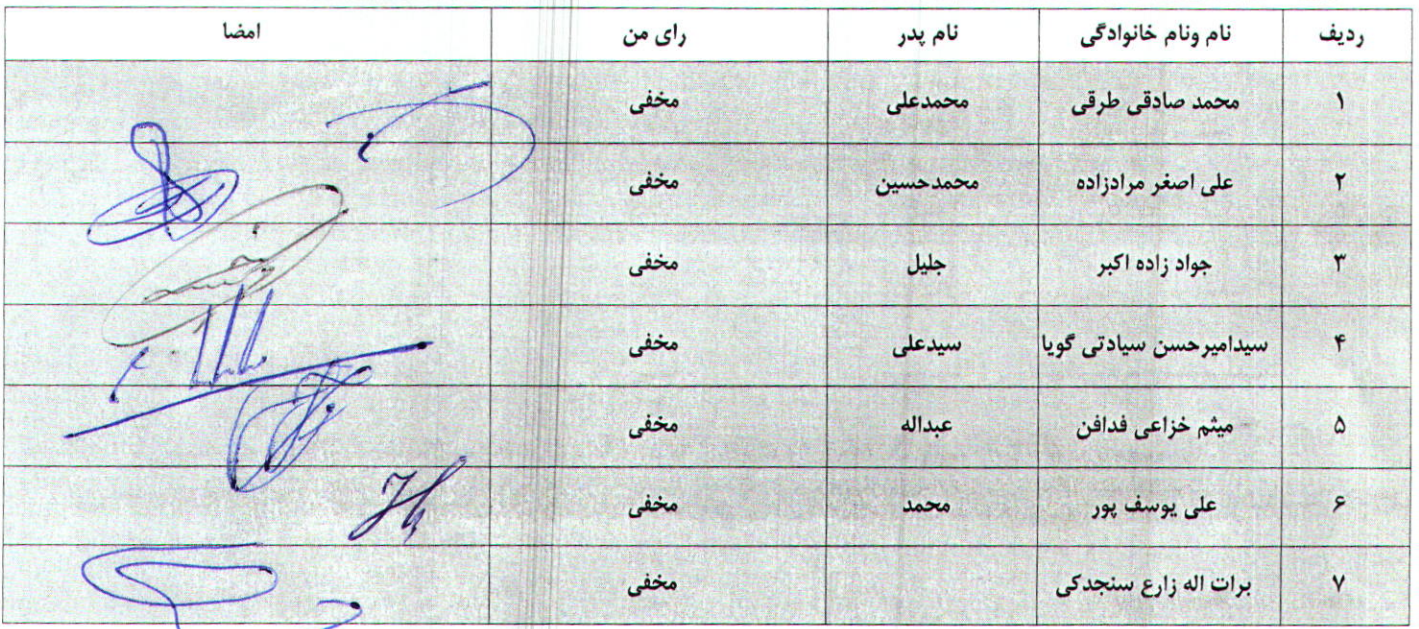 ردیف نام ونام خانوادگی نام پدر رای من امضا
۱ محمد صادقی طرقی محمدعلی مخفی
۲ علی اصغر مرادزاده محمدحسین مخفی
۳ جواد زاده اکبر جلیل مخفی
۴ سیدامیرحسن سیادتی گویا سیدعلی مخفی
۵ میثم خزاعی فدافن عبداله مخفی
۶ علی یوسف پور محمد مخفی
۷ برات اله زارع سنجدکی مخفی